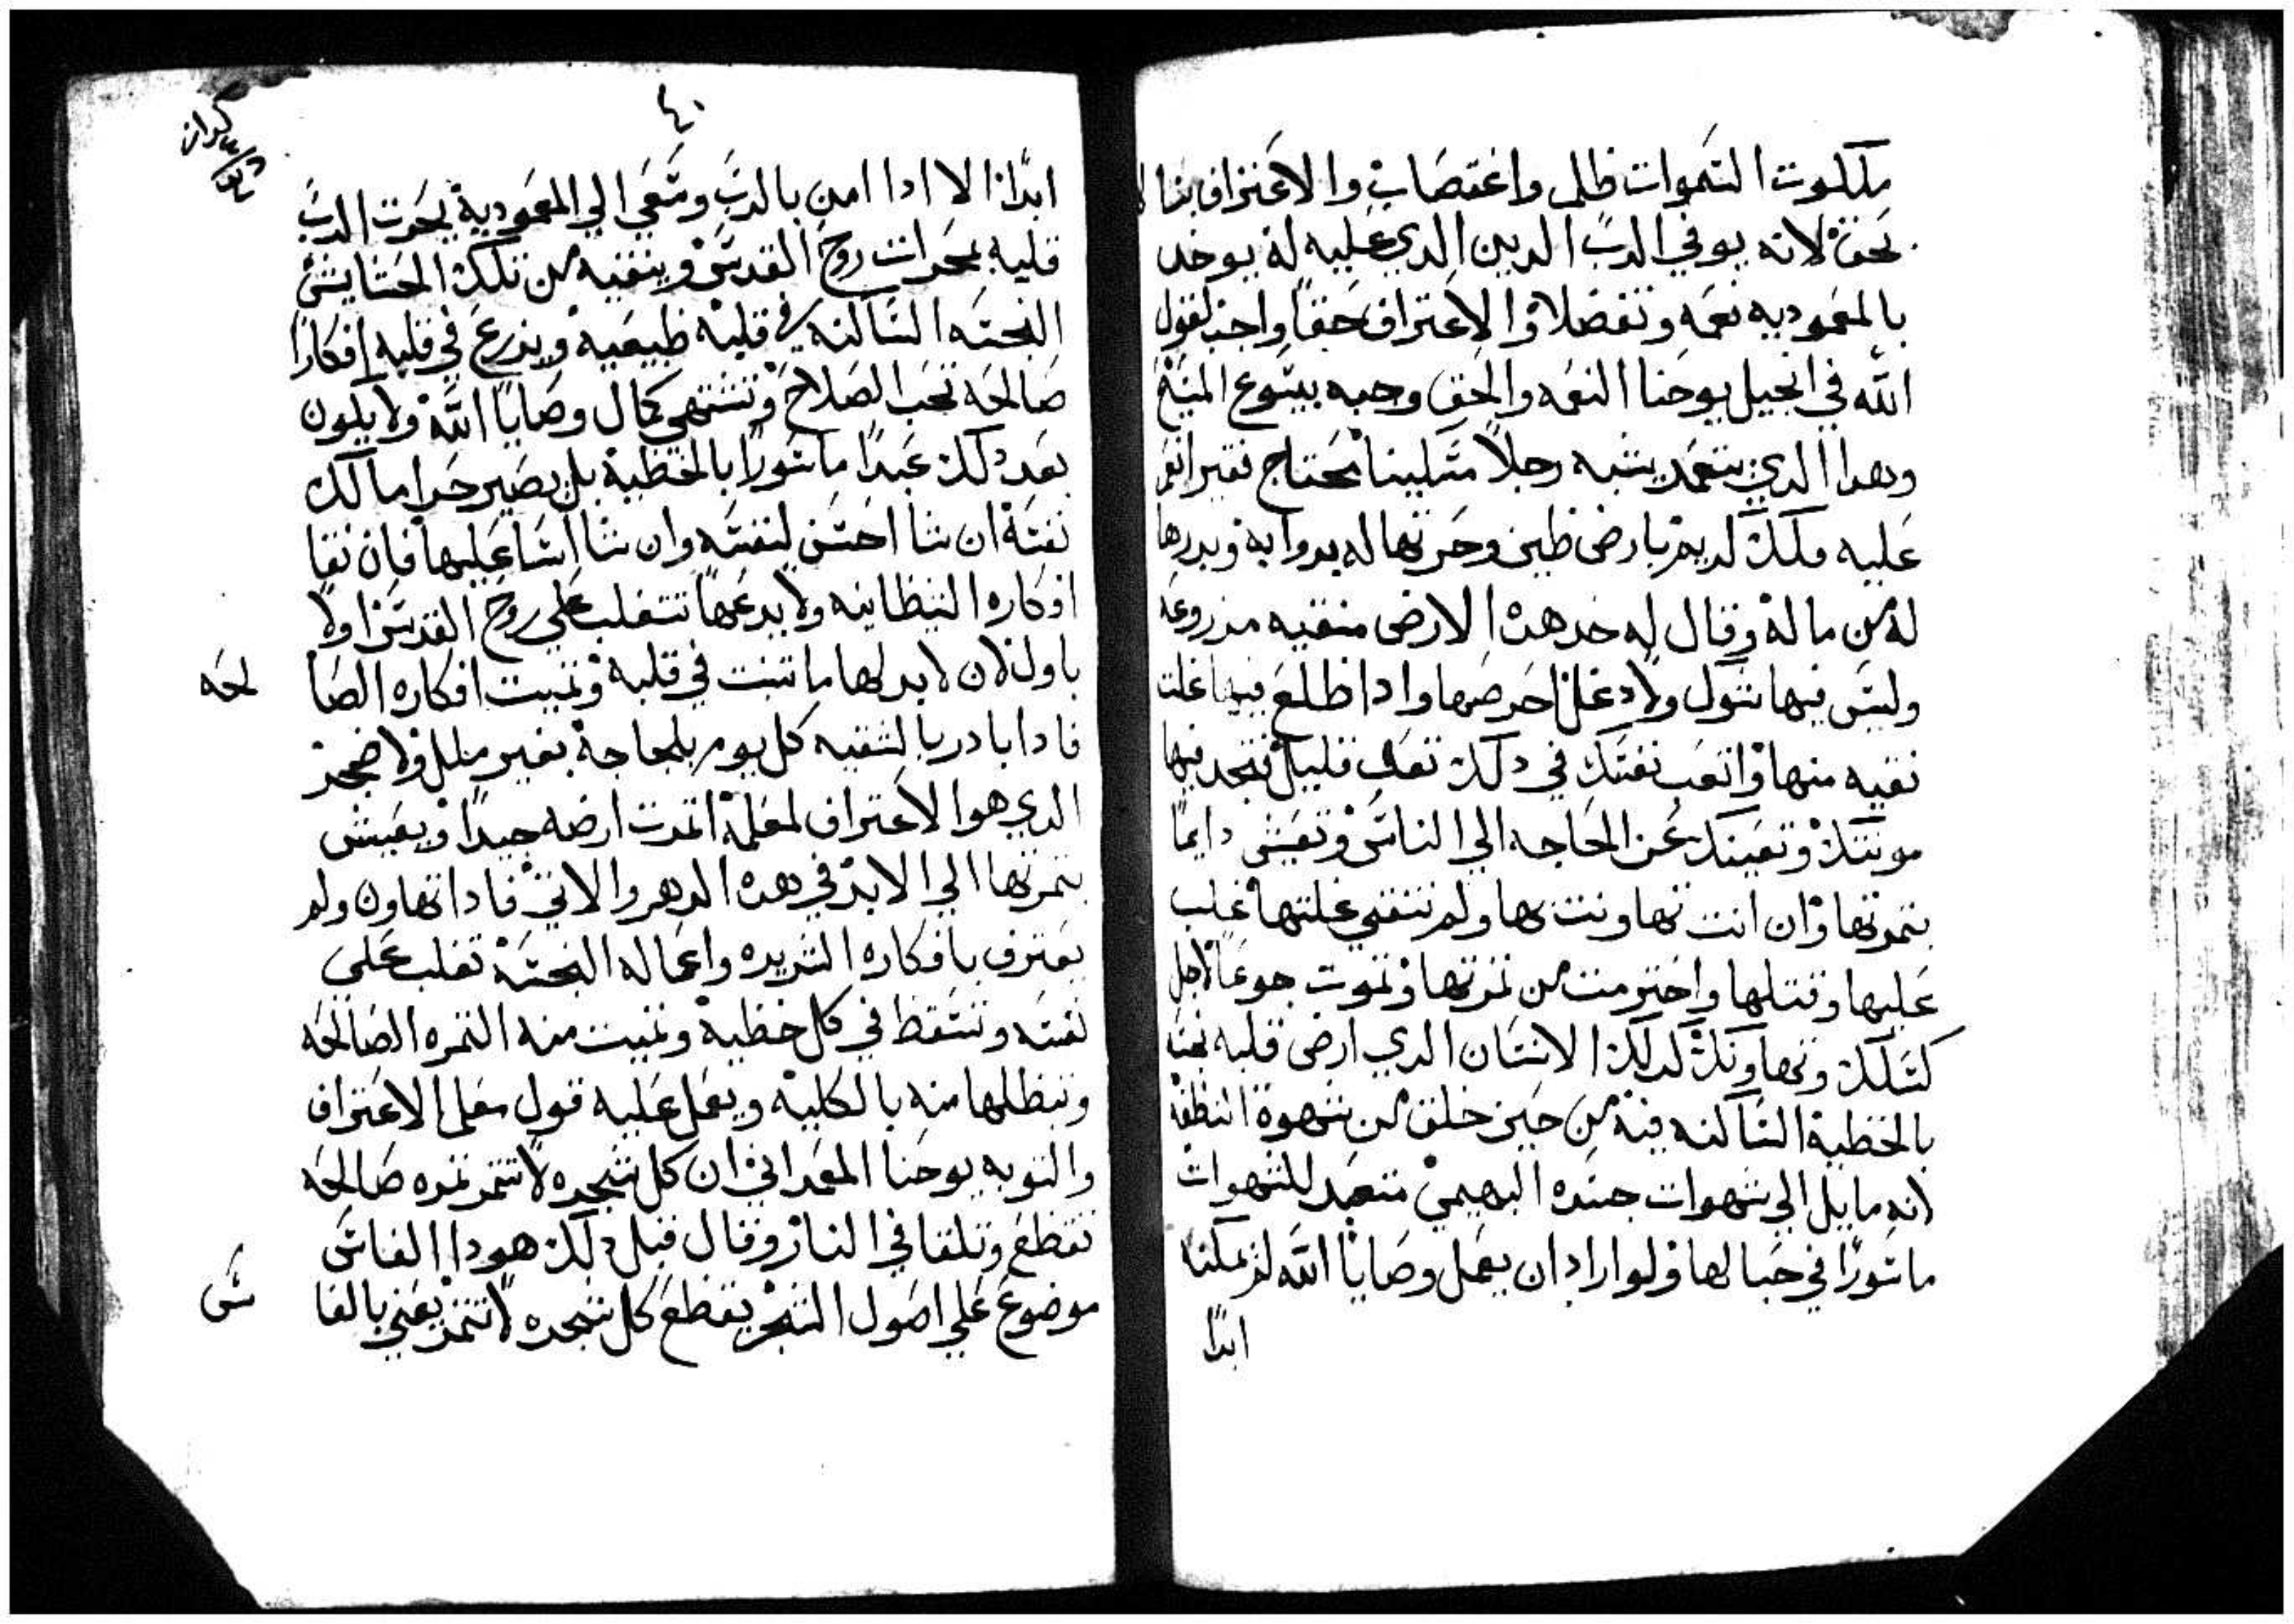 ملكوت السموات ظلم واغتصاب والاعتراف بنا
بحق لانه يوفي الرب الدين الدي عليه له يوخد
بالمعموديه نعمه وتفضلا والاعتراف حقا واجب لقول
الله في انجيل يوحنا النعمه والحق وجبه بيسوع المسيح
وهدا الدي يتعمد يشبه رجلا مسكينا محتاج فقير انعم
عليه ملك كريم بارض طين وحرتها له بدوابه وبدرها
له من ماله وقال له خد هده الارض منقيه مزروعه
وليس فيها شوك ولا دغل احرصها وادا طلع فيها غلت
نقيه منها واتعب نفسك في دلك تعب قليل فتجد فيها
مونتك وتغينك عن الحاجه الي الناس وتعيش دايما
بتمرتها وان انت تهاونت بها ولم تنقي غلتها غلب
عليها وقتلها واخترمت من تمرتها وتموت جوعا لاجل
كسلك وتهاونك كدلك الانسان الدي ارض قلبه
بالخطية الساكنه فيه من حين خلق من شهوة النطفه
لانه مايل الي شهوات جسده البهيمي متعبد للشهوات
ماسورا في حبالها ولو اراد ان يعمل وصايا الله لم يمكنه
ابدا
٤٠
ابدا الا ادا امن بالرب وسعي الي المعمودية يحرت الرب
قلبه بمحرات روح القدس وينقيه من تلك الحشايش
النجسه الساكنه في قلبه طبيعيه ويزرع في قلبه افكارا
صالحه تحب الصلاح وتشتهي كمال وصايا الله ولا يكون
بعد دلك عبدا ماسورا بالخطية بل يصير حرا مالك
نفسه ان شا احسن لنفسه وان شا اسا عليها فان نقا
افكاره الشيطانيه ولا يدعها تتغلب علي روح القدس اولا
باول لان لابد لها ما تنبت في قلبه وتميت افكاره الصا
لحه
فادا بادر بالتنقيه كل يوم بلجاجة بغير ملل ولا ضجر
الدي هو الاعتراف لمعلمه اتمرت ارضه جيدا ويعيش
بتمرتها الي الابد في هده الدهر والاتي فادا تهاون ولم
يعترف بافكاره الشريره واعماله النجسه تغلب علي
نفسه وتسقط في كل خطية وتميت منه التمره الصالحه
وتبطلها منه بالكليه ويعمل عليه قول معلم الاعتراف
والتوبه يوحنا المعمداني ان كل شجره لا تتمر تمره صالحه
تقطع وتلقا في النار وقال قبل دلك هودا الفاس
موضوع علي اصول الشجر يقطع كل شجره لا تتمر يعني بالفا
س